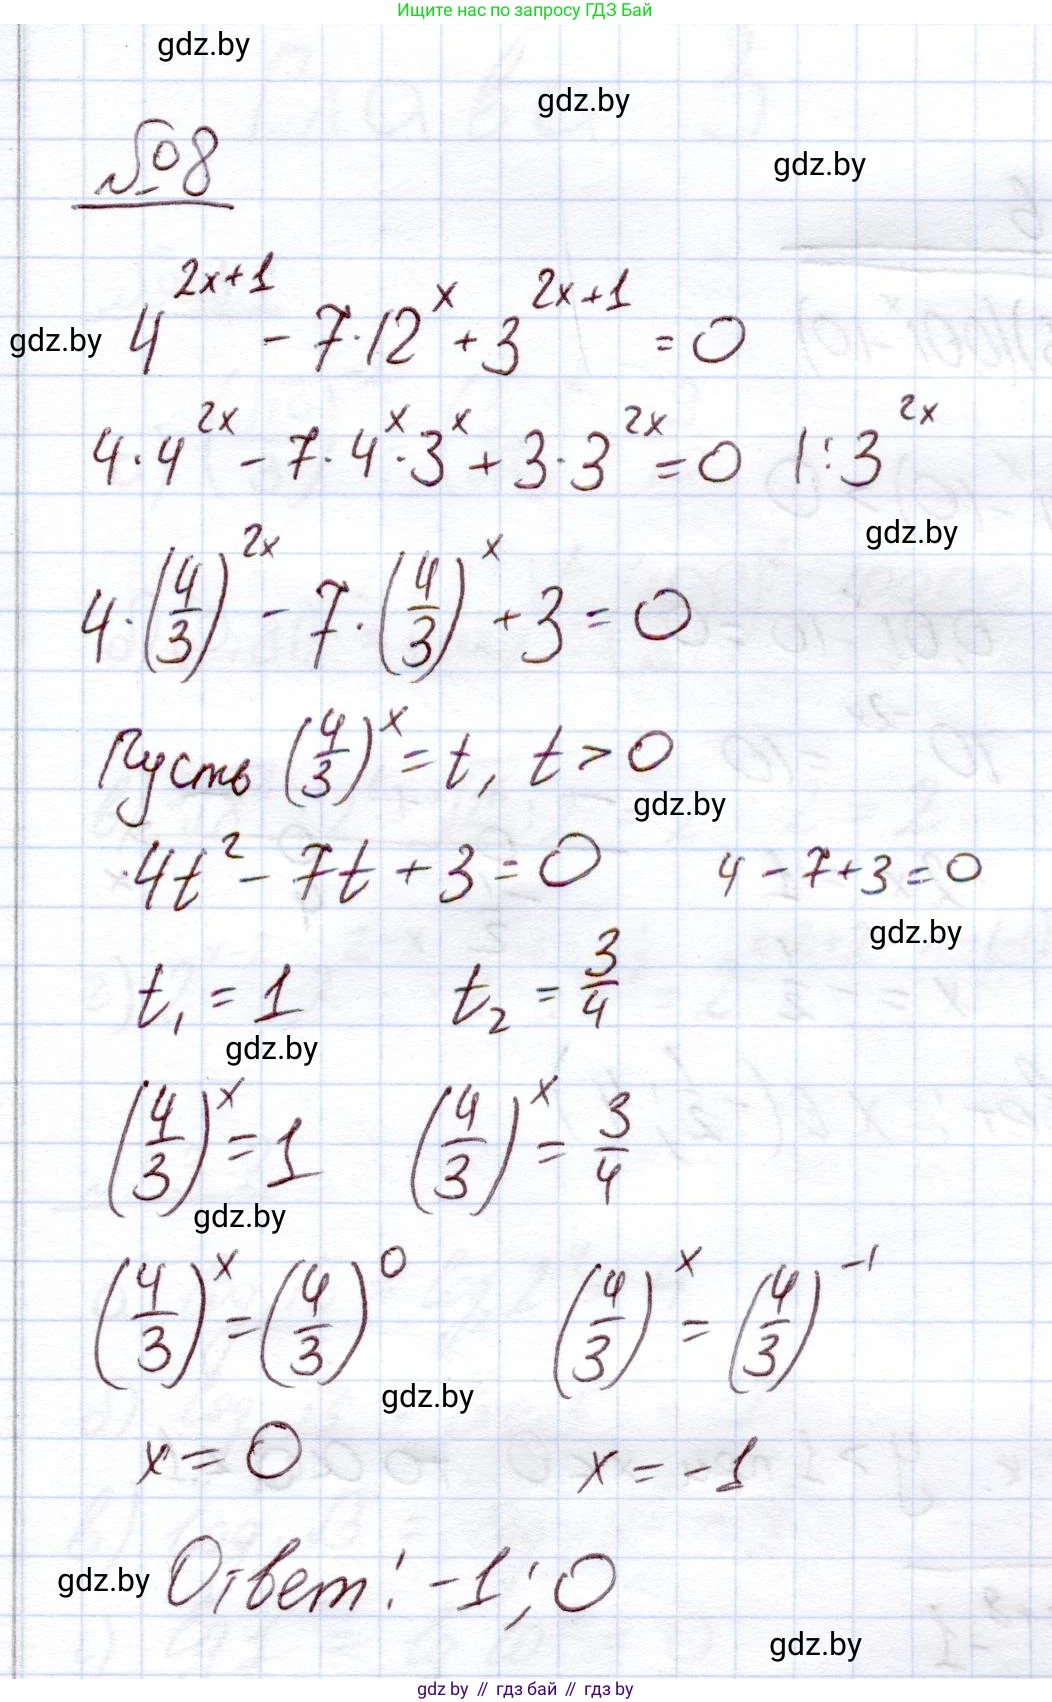 Ищите нас по запросу ГДЗ Бай
gdz.by
gdz.by
№8
gdz.by
4^{2x+1} - 7·12^x + 3^{2x+1} = 0
gdz.by
4·4^{2x} - 7·4^x·3^x + 3·3^{2x} = 0 |:3^{2x}
gdz.by
4·(4/3)^{2x} - 7·(4/3)^x + 3 = 0
Пусть (4/3)^x = t, t > 0
gdz.by
4t² - 7t + 3 = 0 4 - 7 + 3 = 0
gdz.by
t₁ = 1 t₂ = 3/4
gdz.by
(4/3)^x = 1 (4/3)^x = 3/4
gdz.by
(4/3)^x = (4/3)^0 (4/3)^x = (4/3)^{-1}
gdz.by
x = 0 x = -1
gdz.by
Ответ: -1; 0
gdz.by
gdz by // гдз бай // gdz by